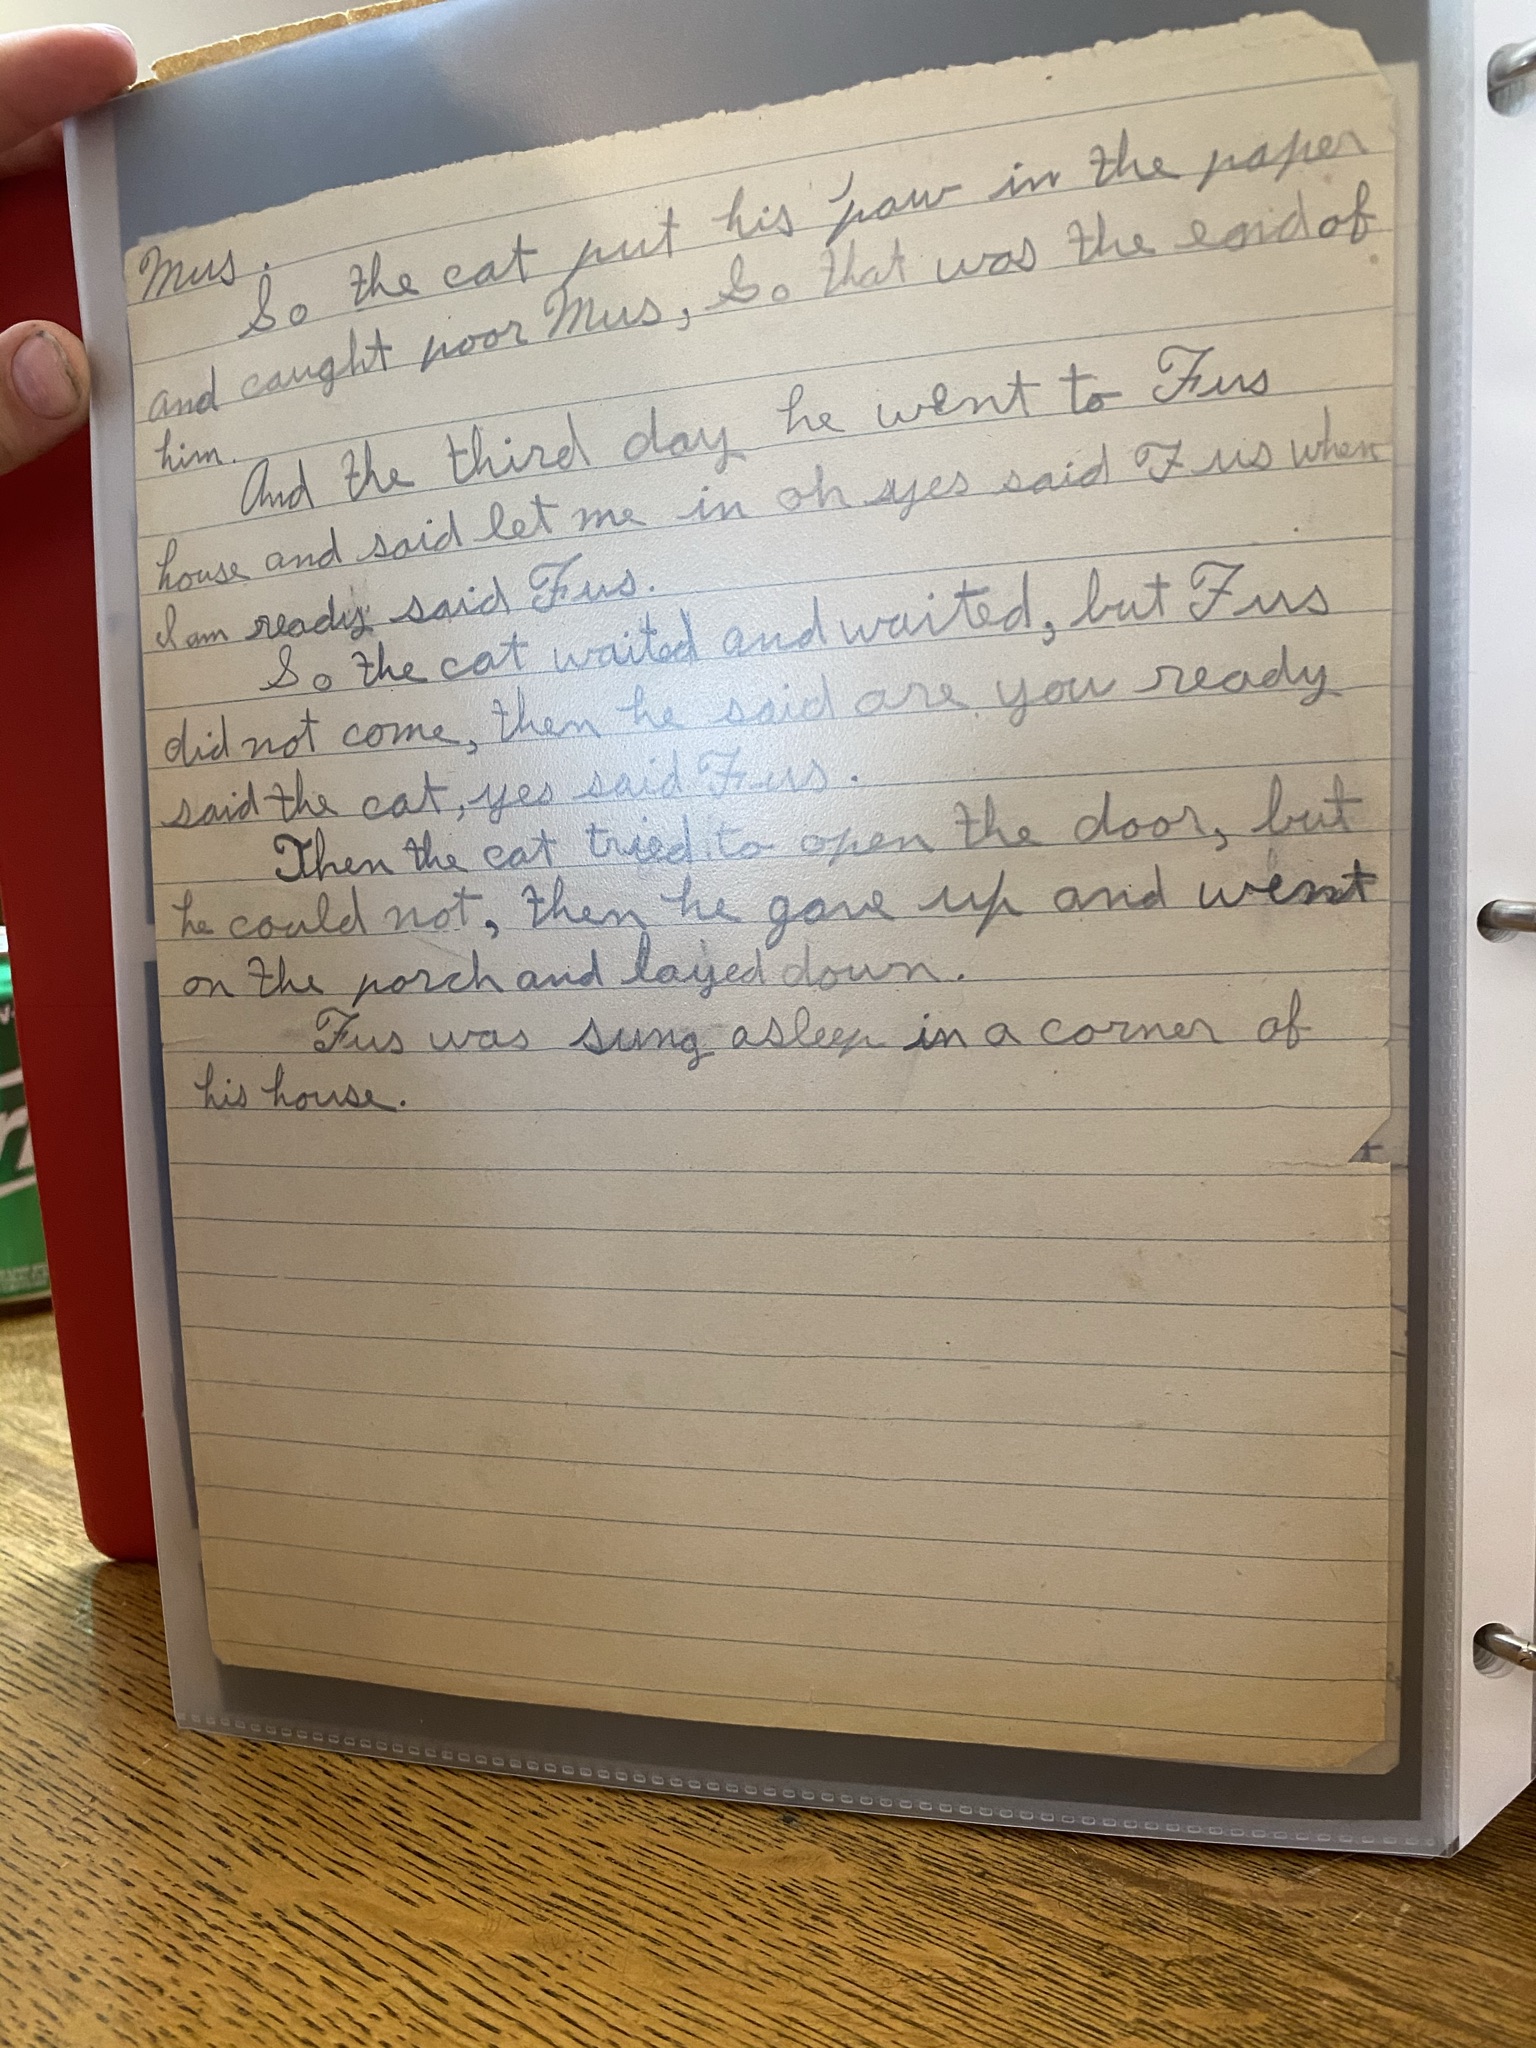 Mus.
So the cat put his paw in the paper
and caught poor Mus, So that was the end of
him.
And the third day he went to Fus
house and said let me in oh yes said Fus when
I am ready said Fus.
So the cat waited and waited, but Fus
did not come, then he said are you ready
said the cat, yes said Fus.
Then the cat tried to open the door, but
he could not, then he gave up and went
on the porch and layed down.
Fus was sung asleep in a corner of
his house.